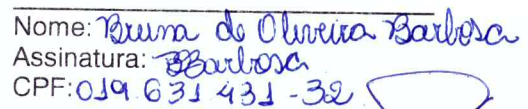 Nome: Bruna de Oliveira Barbosa
Assinatura: BBarbosa
CPF: 019 631 431 - 32